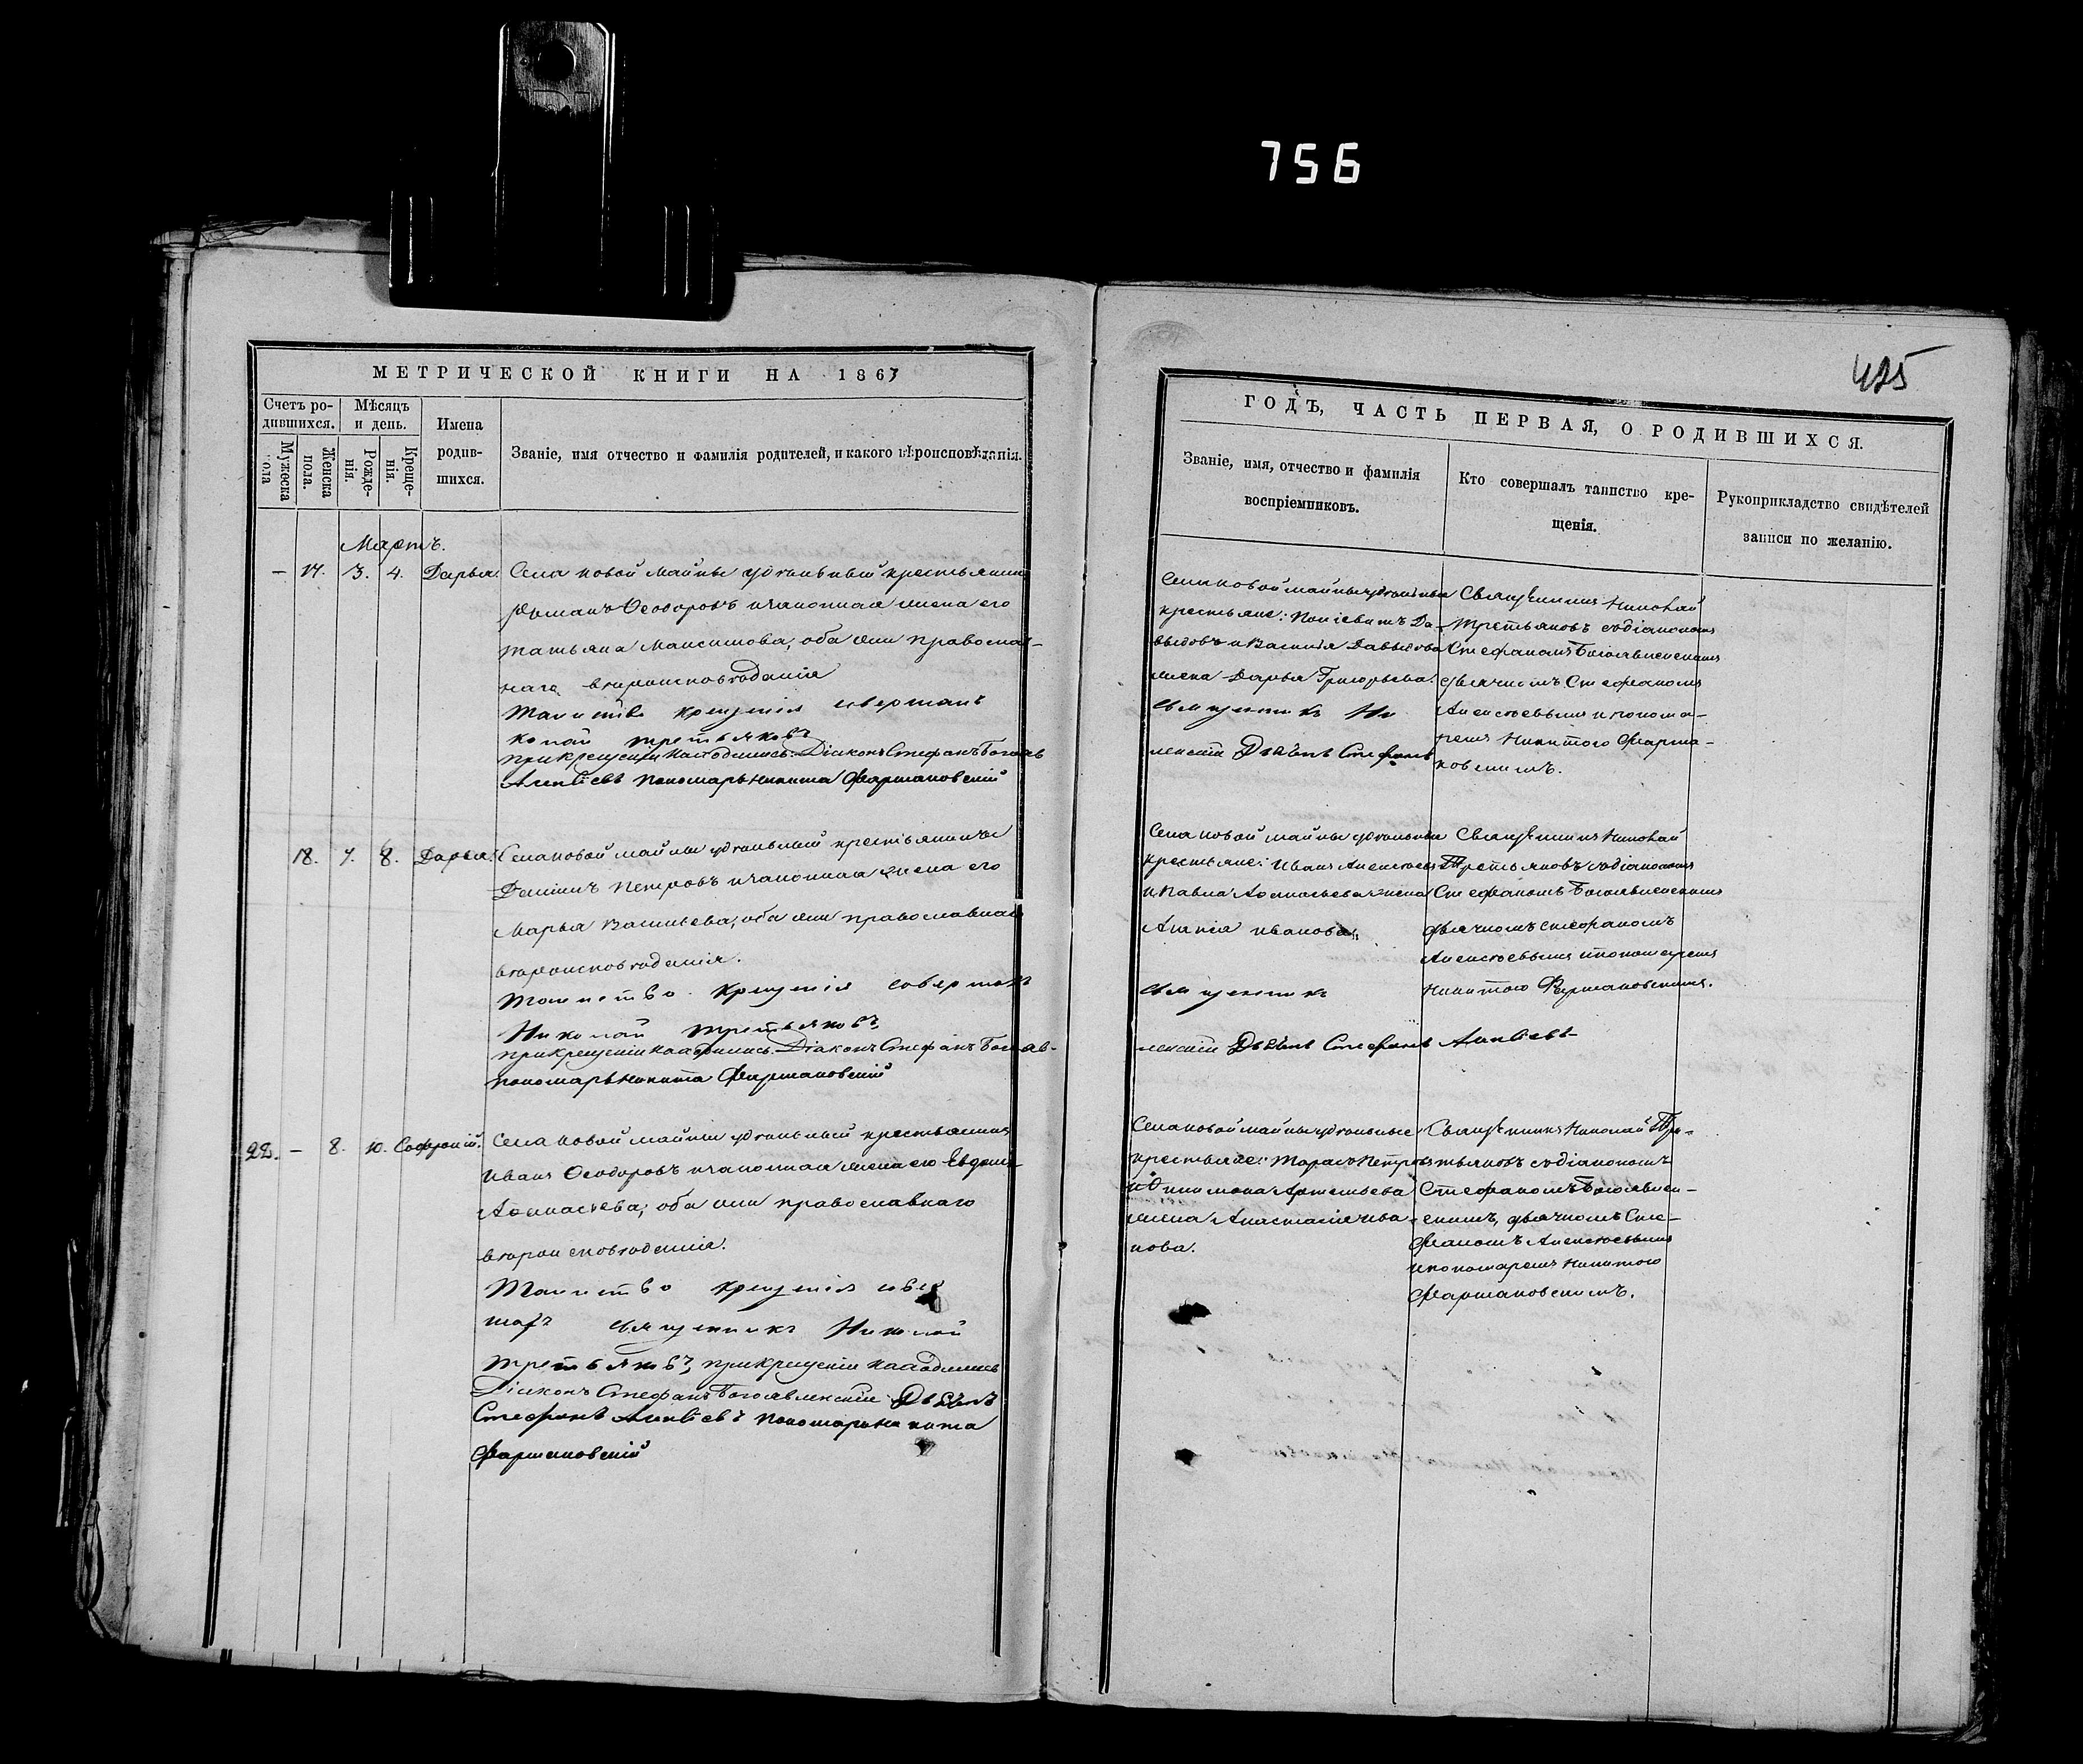 756
МЕТРИЧЕСКОЙ КНИГИ НА 1867
Счетъ ро-
дившихся.
Мѣсяцъ
и день.
Имена
родив-
шихся.
Званіе, имя отчество и фамилія родителей, и какого вѣроисповѣданія.
Мужеска
пола
Женска
пола.
Рожде-
нія.
Креще-
нія.
Мартъ.
— 17. 3. 4. Дарья.
Села новой Майны удѣльный крестьянинъ
Романъ Ѳеодоровъ и законная жена его
Татьяна Максимова, оба они православ-
наго вѣроисповѣданія
Таинство крещенія совершалъ
колай Третьяковъ
при крещеніи находились: Діаконъ Стефанъ Богояв
Алексѣевъ Пономарь Никита Фармаковскій
18. 7. 8. Дарья.
Села новой майны удѣльный крестьянинъ
Петровъ и законная жена его
Марья Васильева, оба они православнаго
вѣроисповѣданія.
Таинство крещенія совершалъ
Николай Третьяковъ,
при крещеніи находились Діаконъ Стефанъ Богояв-
Пономарь Никита Фармаковскій
22. — 8. 10. Софроній.
Села новой майны удѣльный крестьянинъ
Иванъ Ѳеодоровъ и законная жена его Евдокія
Аѳанасьева, оба они православнаго
вѣроисповѣданія.
Таинство крещенія совер
шалъ священникъ Николай
Третьяковъ, при крещеніи находились
Діаконъ Стефанъ Богоявленскій Дьячекъ
Стефанъ Алексѣевъ Пономарь Никита
Фармаковскій
425
ГОДЪ, ЧАСТЬ ПЕРВАЯ, О РОДИВШИХСЯ.
Званіе, имя, отчество и фамилія
воспріемниковъ.
Кто совершалъ таинство кре-
щенія.
Рукоприкладство свидѣтелей
записи по желанію.
Села новой майны удѣльные
крестьяне: Да-
выдовъ и Василія Давыдова
жена Дарья Григорьева.
священникъ Ни
ленскій Дьячекъ Стефанъ
Священникъ Николай
Третьяковъ съ діакономъ
Стефаномъ Богоявленскимъ
дьячкомъ Стефаномъ
Алексѣевымъ и понома-
ремъ Никитою Фарма-
ковскимъ.
Села новой майны удѣльные
крестьяне: Иванъ Алексѣевъ
и Павла Аѳанасьева жена
Иванова.
священникъ
ленскій Дьячекъ Стефанъ Алексѣевъ
Священникъ Николай
Третьяковъ съ діакономъ
Стефаномъ Богоявленскимъ
дьячкомъ Стефаномъ
Алексѣевымъ и пономаремъ
Никитою Фармаковскимъ.
Села новой майны удѣльные
крестьяне: Тарасъ Петровъ
и Филимона Артемьева
жена Анастасія Ива-
нова.
Священникъ Николай Тре-
тьяковъ съ діакономъ
Стефаномъ Богоявлен-
скимъ, дьячкомъ Сте-
фаномъ Алексѣевымъ
и пономаремъ Никитою
Фармаковскимъ.